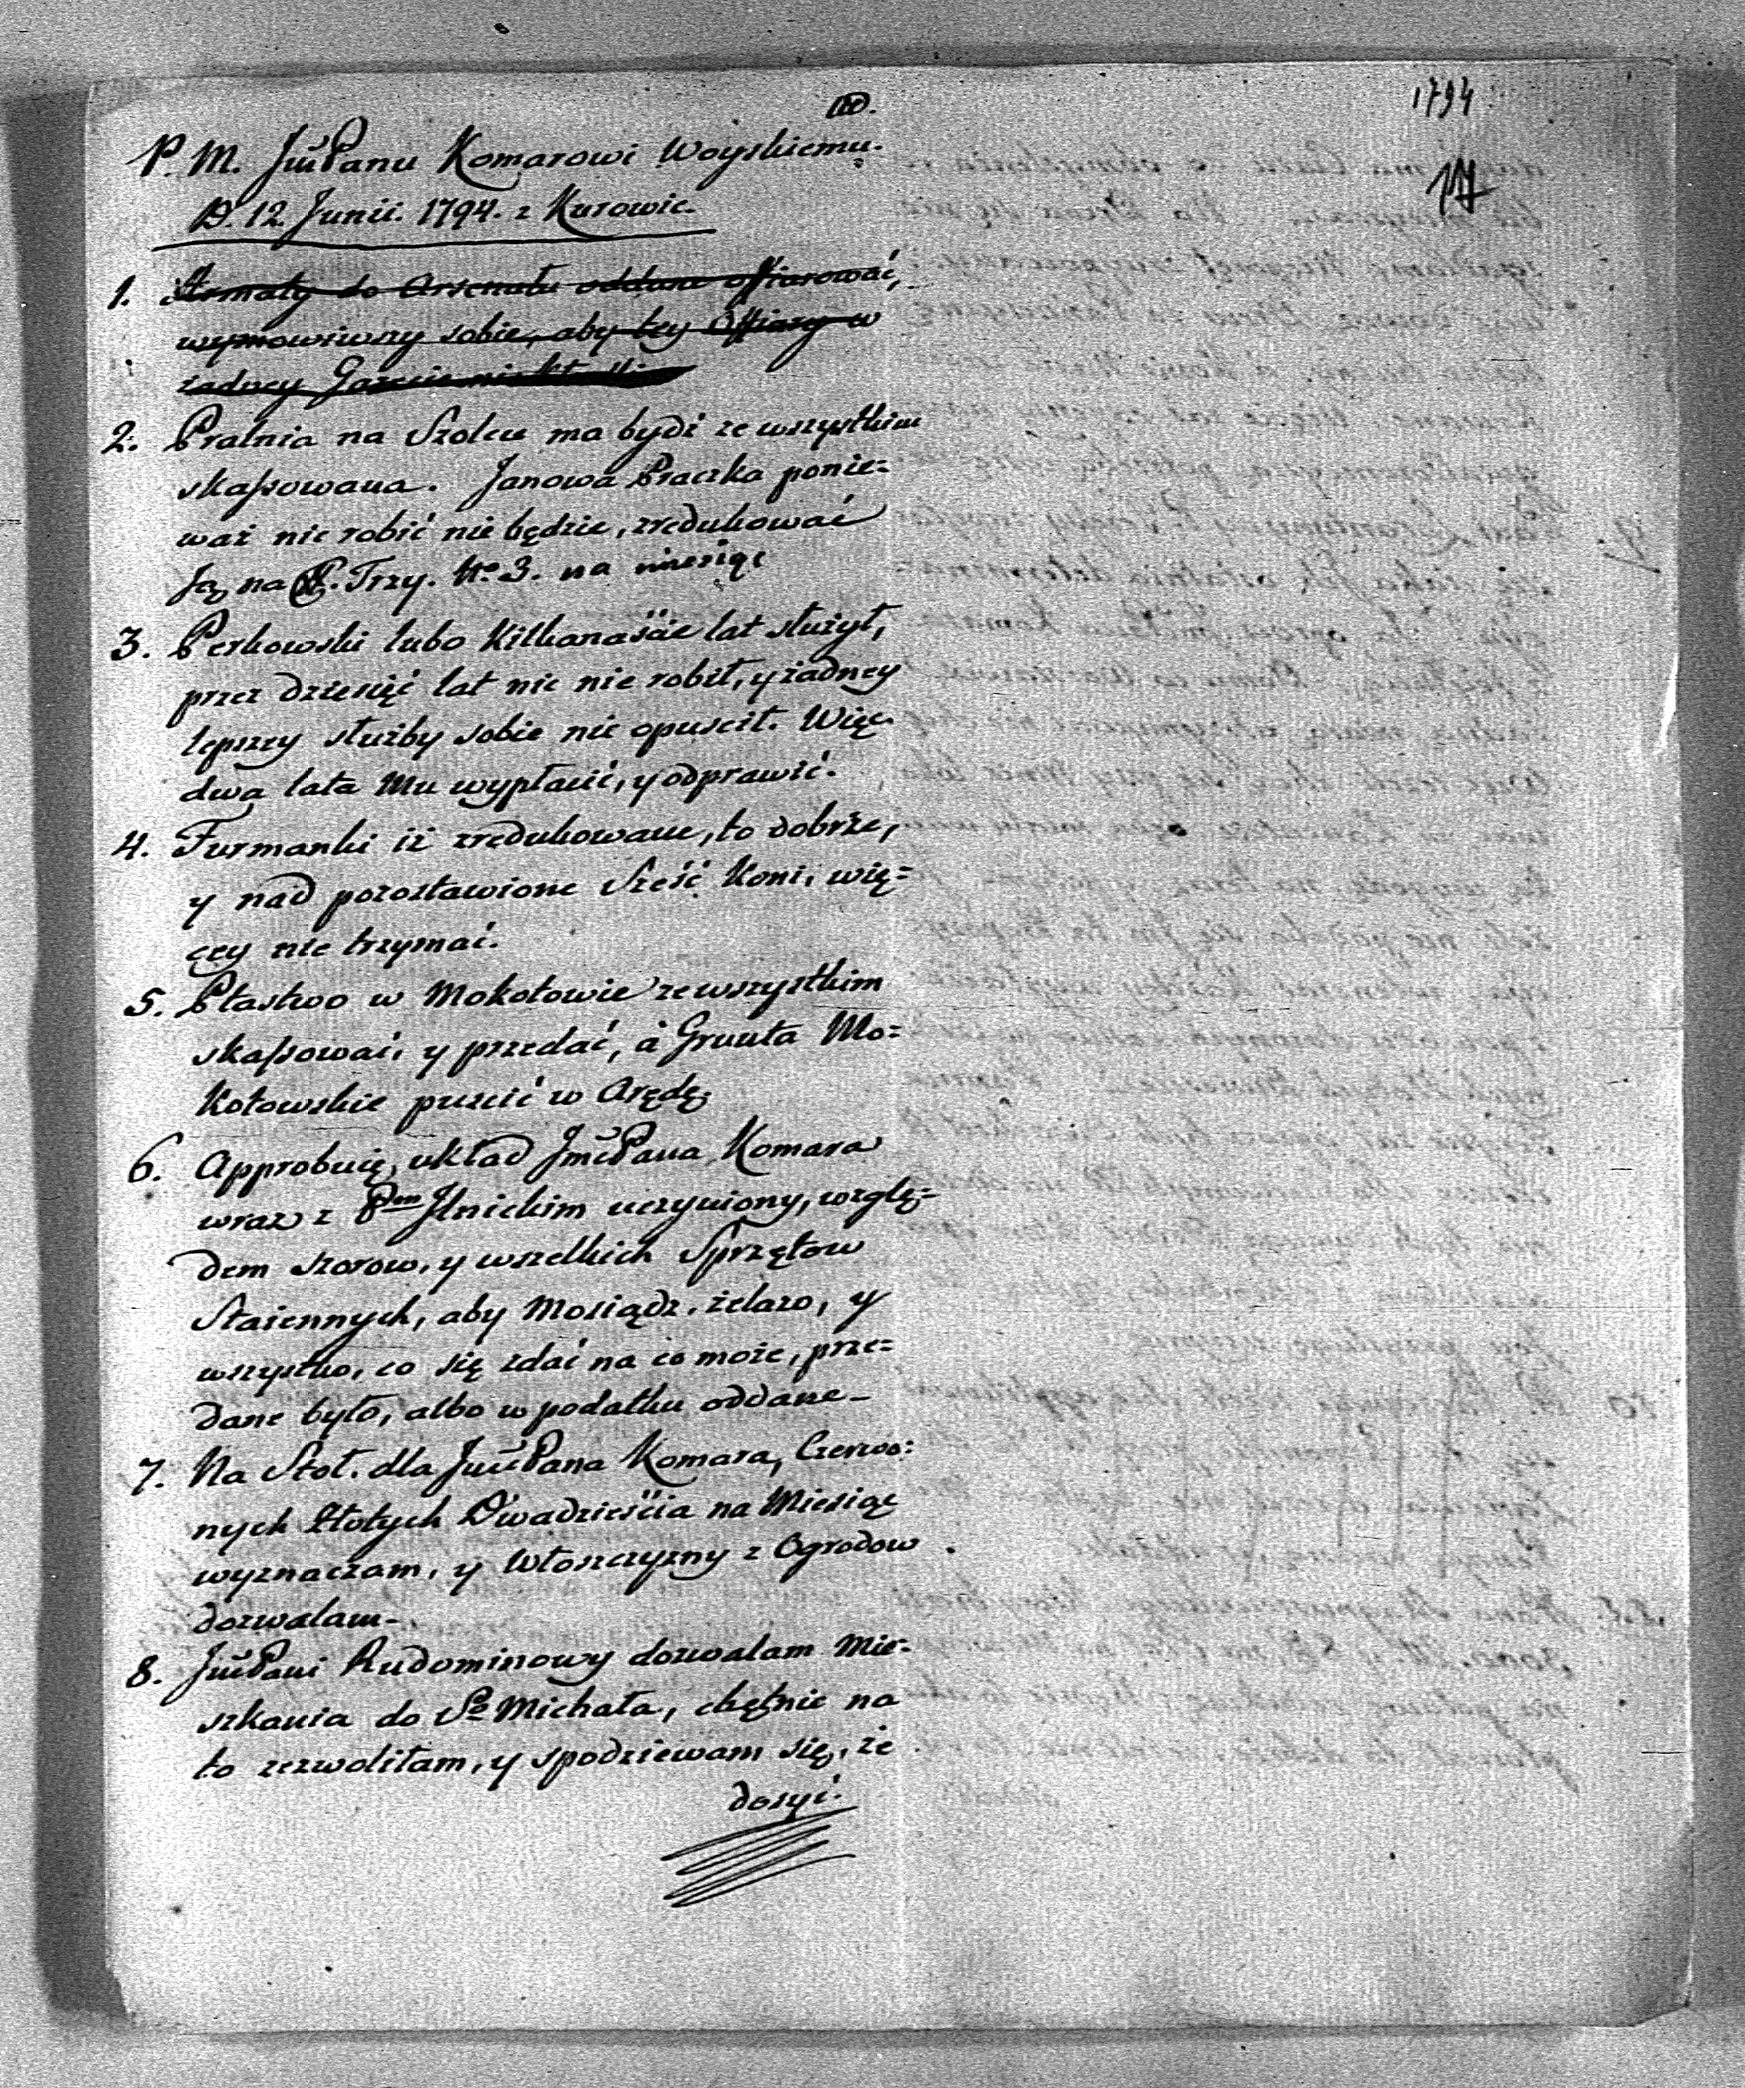 1794
P. M. JmPanu Komarowi Woyskiemu.
D. 12 Junii. 1794. z Kurowic.
1. Armaty do Arsenału oddane offiarować,
wymowiwszy sobie, aby tey Offiary w
żadney Gazecie nie
2. Pralnia na Szolcu ma bydź ze wszystkim
skassowana. Janowa Praczka ponie=
waż nic robić nie będzie, zredukować
Ją na Trzy. No. 3. na miesiąc
3. Perkowski lubo kilkanaście lat służył,
przez dziesięć lat nic nie robił, y żadney
lepszey służby sobie nie opuscił. Więc
dwa lata Mu wypłacić, y odprawić.
4. Furmanki iż zredukowane, to dobrze,
y nad pozostawione Sześć Koni, wię=
cey nie trzymać.
5. Ptastwo w Mokotowie ze wszystkim
skassować, y przedać, à Grunta Mo=
kotowskie puscić w Arędę.
6. Approbuię, układ JmćPana Komara
wraz z Pem Ilnickim uczyniony, wzglę=
dem szorow, y wszelkich Sprzętow
Staiennych, aby Mosiądz, żelazo, y
wszystko, co się zdać na co może, prze=
dane było, albo w podatku oddane–
7. Na Stoł. dla JmćPana Komara, Czerwo=
nych Złotych Dwadzieścia na Miesiąc
wyznaczam, y Włoszczyzny z Ogrodow
dozwalam–
8. JmćPani Rudominowy dozwalam Mie=
szkania do So Michała, chętnie na
to zezwoliłam, y spodziewam się, że
dosyć.